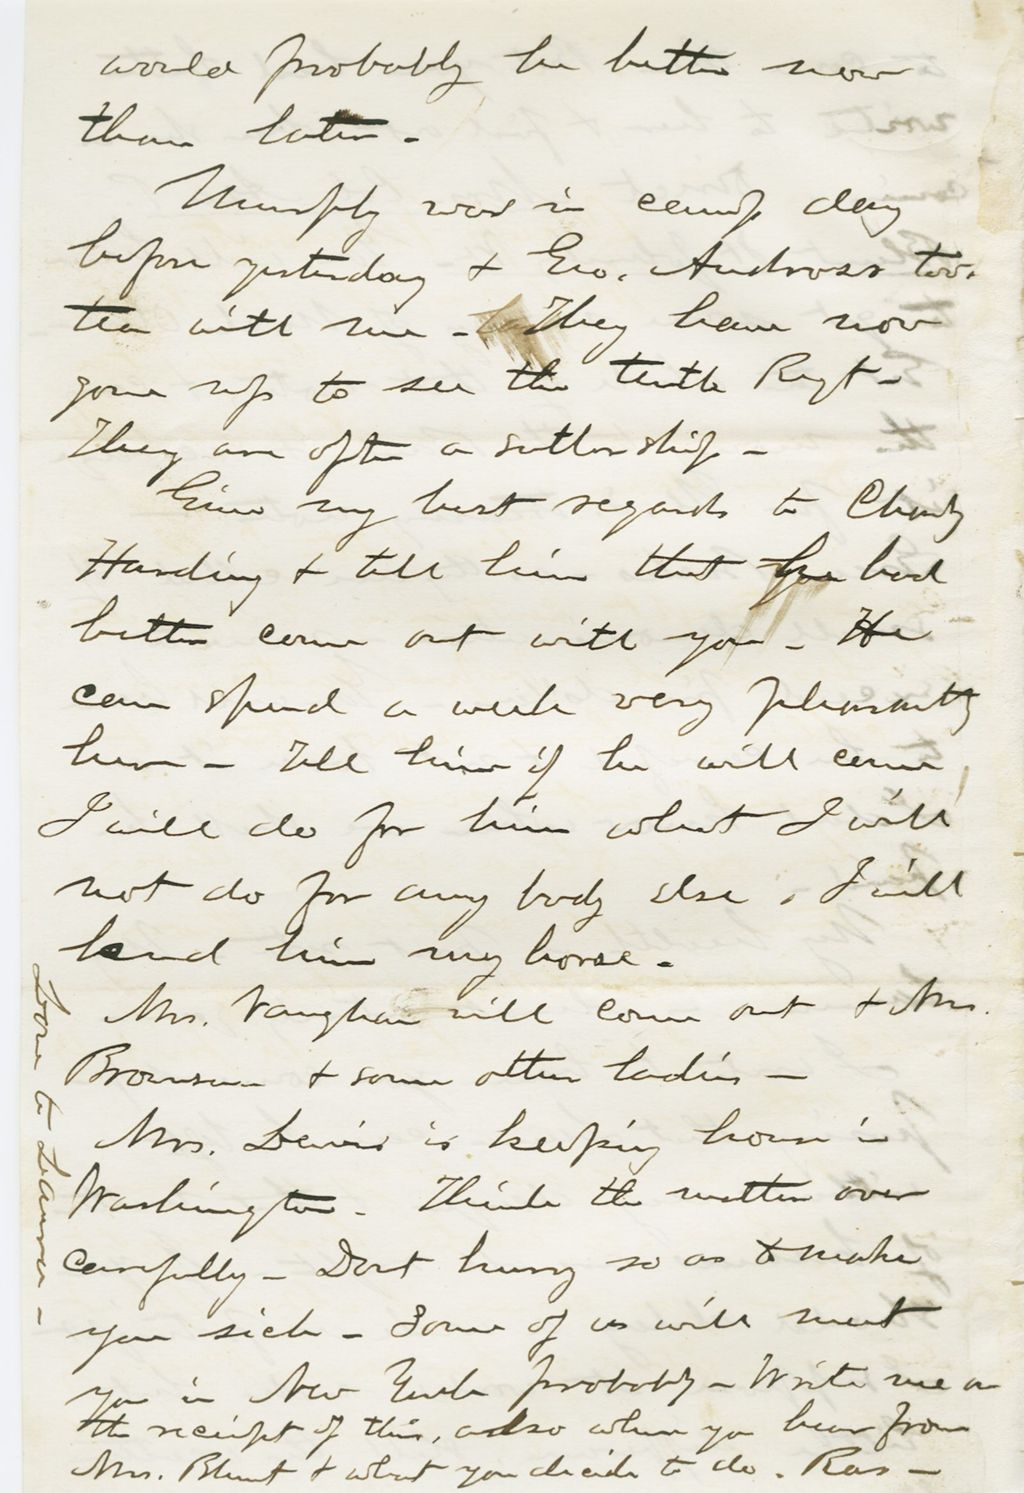 would probably be better now
than later -
Murphy was in camp day
before yesterday & Geo. Andross too.
tea with me - They have now
gone up to see the tenth Regt -
They are after a sutlership -
Give my best regards to Charly
Harding & tell him that he had
better come out with you - He
can spend a week very pleasantly
here - Tell him if he will come,
I will do for him what I will
not do for any body else, I will
lend him my horse -
Mrs. Vaughan will come out & Mrs.
Bronson & some other ladies -
Mrs. Lewis is keeping house in
Washington. Think the matter over
carefully - Dont hurry so as to make
you sick - Some of us will meet
you in New York probably - Write me on
the receipt of this, also when you hear from
Mrs. Blunt & what you decide to do. Ras -
Love to Laura -